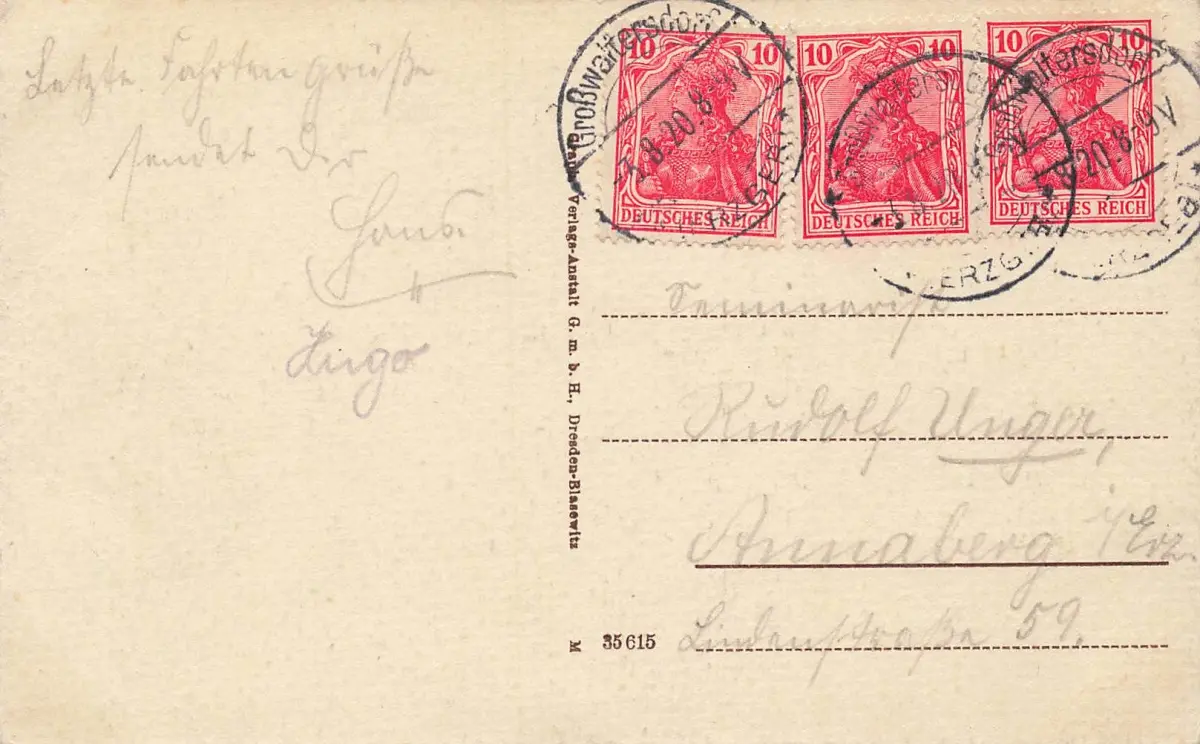 Letzte Fahrtengrüße
sendet Der
Hans.
Hugo
Verlags-Anstalt G. m. b. H., Dresden-Blasewitz
M 35615
10 10
DEUTSCHES REICH
10 10
DEUTSCHES REICH
10 10
DEUTSCHES REICH
Großwaltersdorf
20.8-9V
Großwaltersdorf
ERZG
Großwaltersdorf
20.8-9V
Seminarist
Rudolf Unger,
Annaberg i/Erz.
Lindenstraße 59.